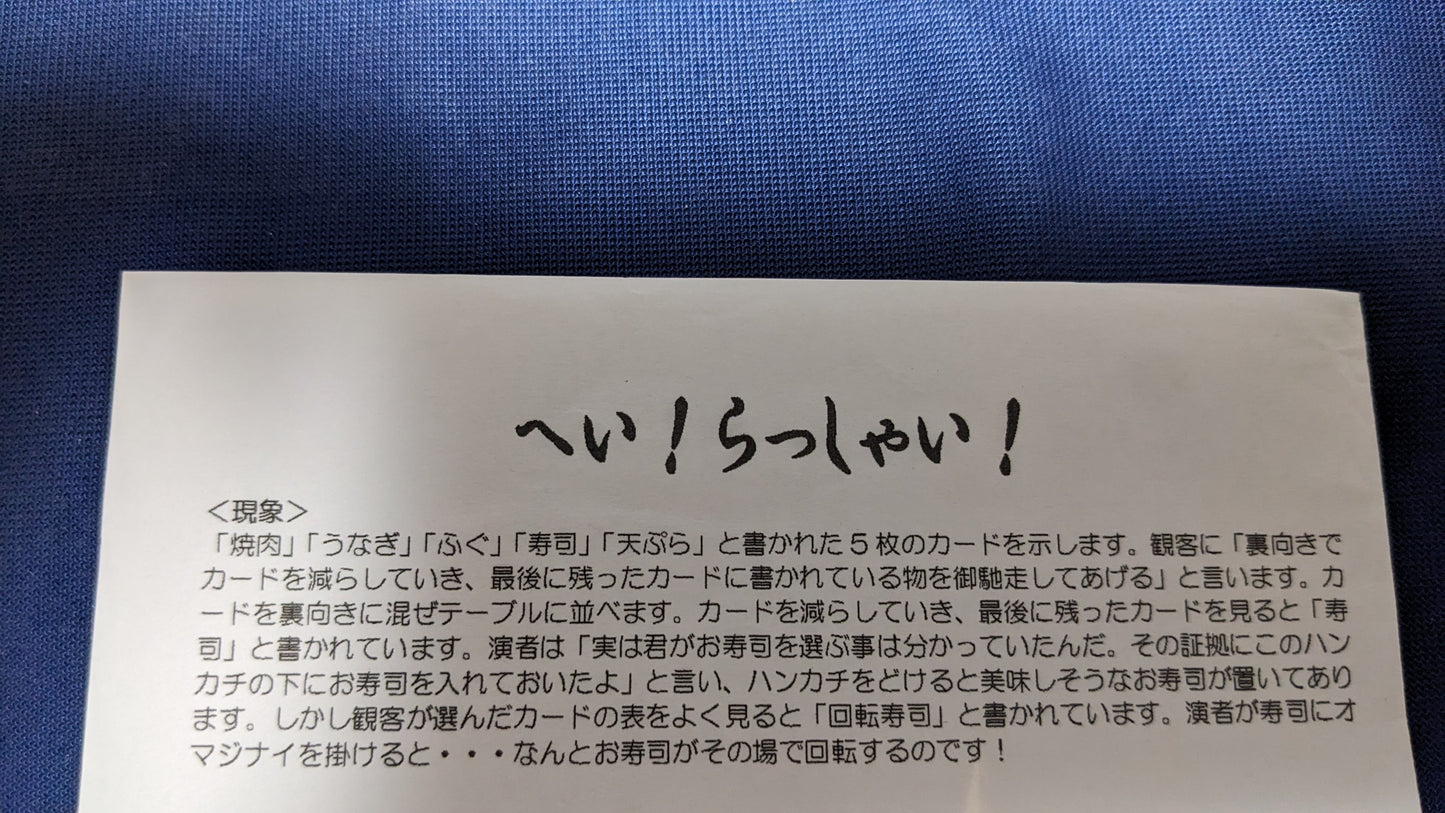 へい！らっしゃい！
＜現象＞
「焼肉」「うなぎ」「ふぐ」「寿司」「天ぷら」と書かれた５枚のカードを示します。観客に「裏向きで
カードを減らしていき、最後に残ったカードに書かれている物を御馳走してあげる」と言います。カ
ードを裏向きに混ぜテーブルに並べます。カードを減らしていき、最後に残ったカードを見ると「寿
司」と書かれています。演者は「実は君がお寿司を選ぶ事は分かっていたんだ。その証拠にこのハン
カチの下にお寿司を入れておいたよ」と言い、ハンカチをどけると美味しそうなお寿司が置いてあり
ます。しかし観客が選んだカードの表をよく見ると「回転寿司」と書かれています。演者が寿司にオ
マジナイを掛けると・・・なんとお寿司がその場で回転するのです！